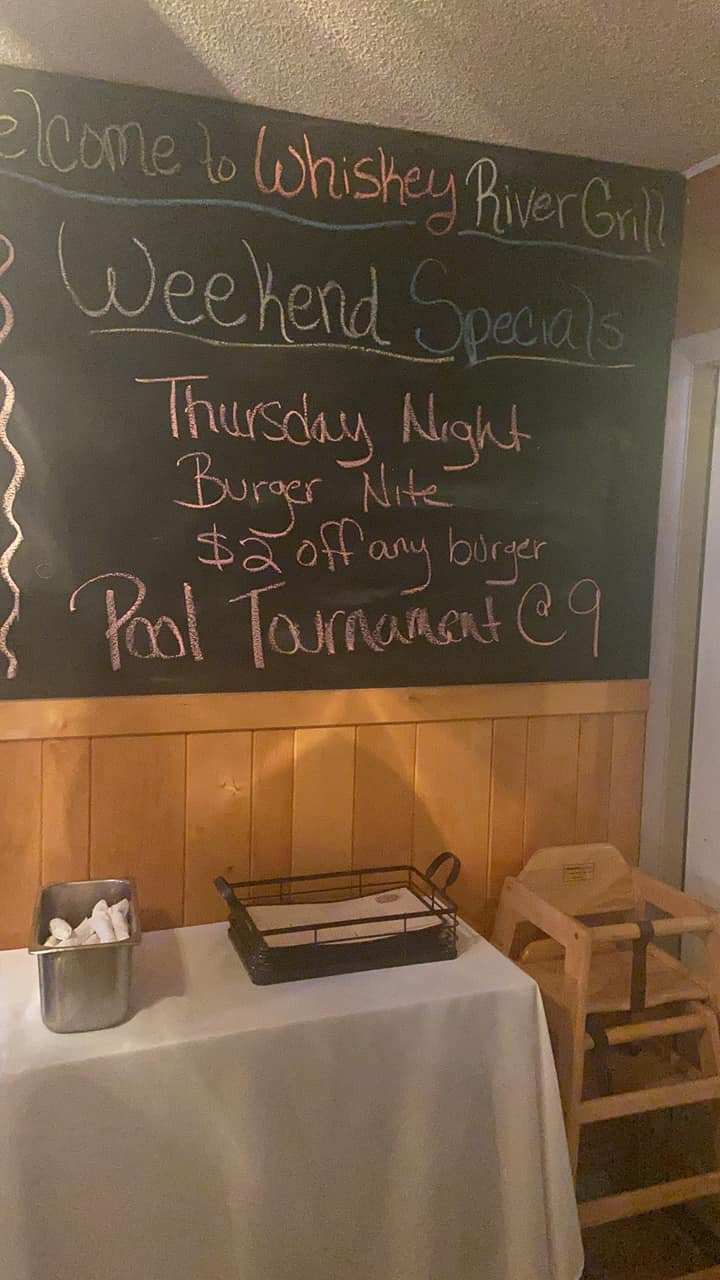 elcome to Whiskey River Grill
Weekend Specials
Thursday Night
Burger Nite
$2 off any burger
Pool Tournament @ 9